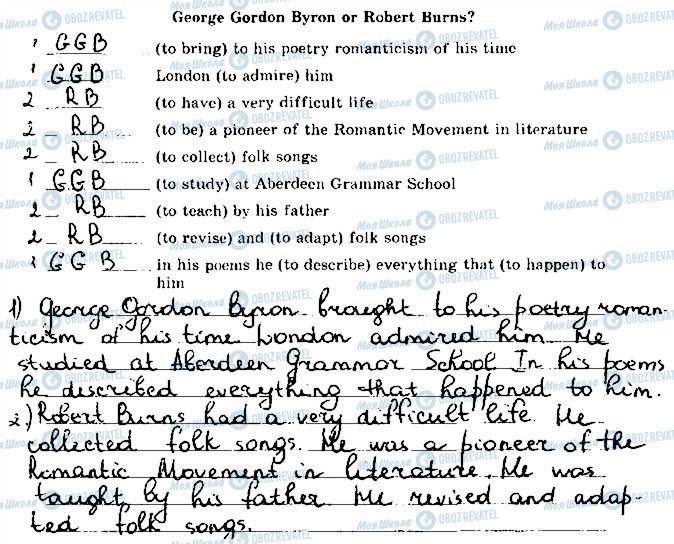 George Gordon Byron or Robert Burns?
1 GGB (to bring) to his poetry romanticism of his time
1 GGB London (to admire) him
2 RB (to have) a very difficult life
2 RB (to be) a pioneer of the Romantic Movement in literature
2 RB (to collect) folk songs
1 GGB (to study) at Aberdeen Grammar School
2 RB (to teach) by his father
2 RB (to revise) and (to adapt) folk songs
1 GGB in his poems he (to describe) everything that (to happen) to
him
1) George Gordon Byron brought to his poetry roman-
ticism of his time London admired him. He
studied at Aberdeen Grammar School In his poems
he described everything that happened to him.
2.) Robert Burns had a very difficult life. He
collected folk songs. He was a pioneer of the
Romantic Movement in literature. He was
taught by his father He revised and adap-
ted folk songs.
Моя Школа OBOZREVATEL